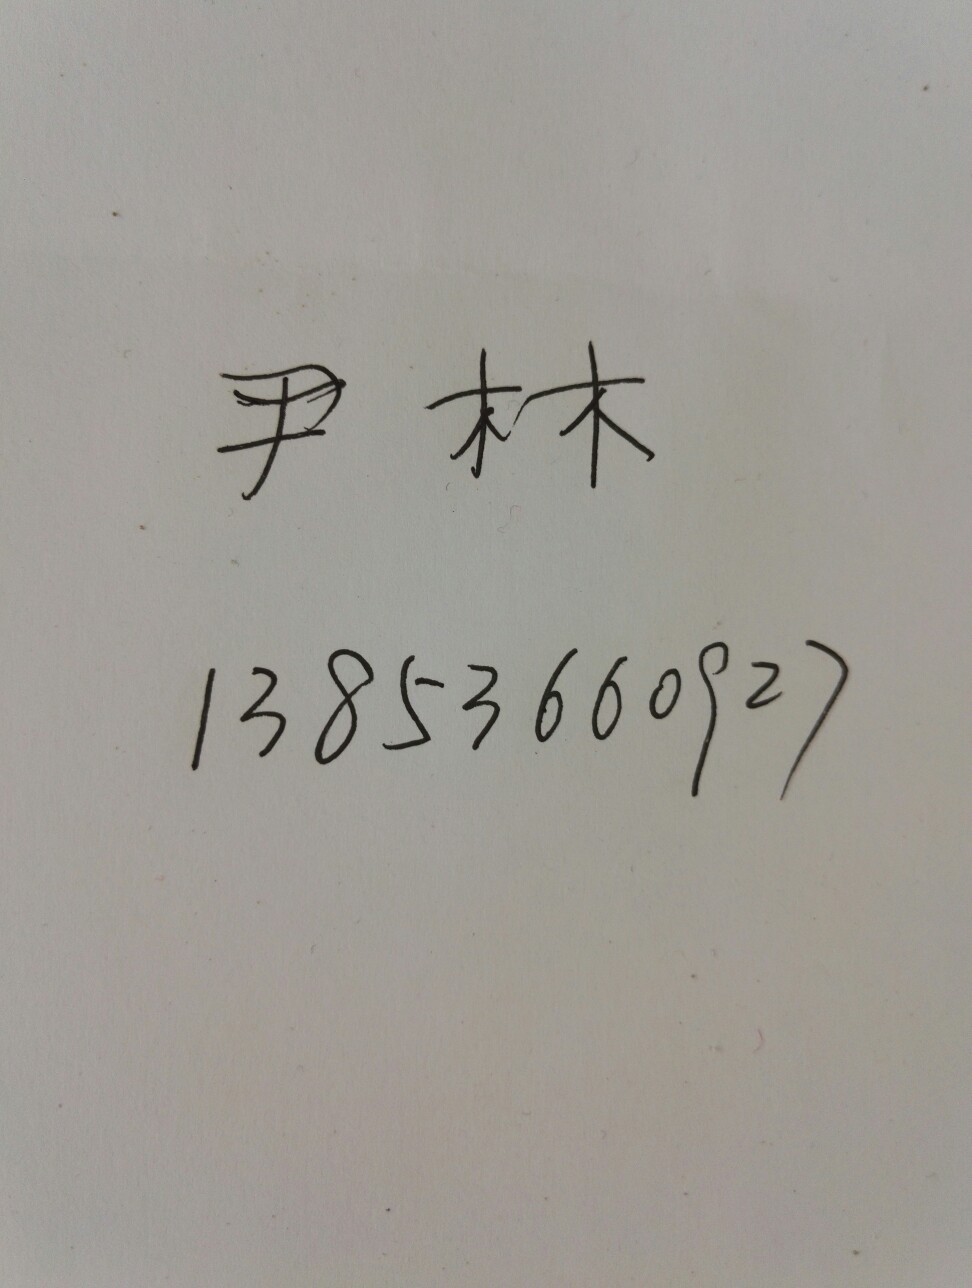 尹林
13853660927